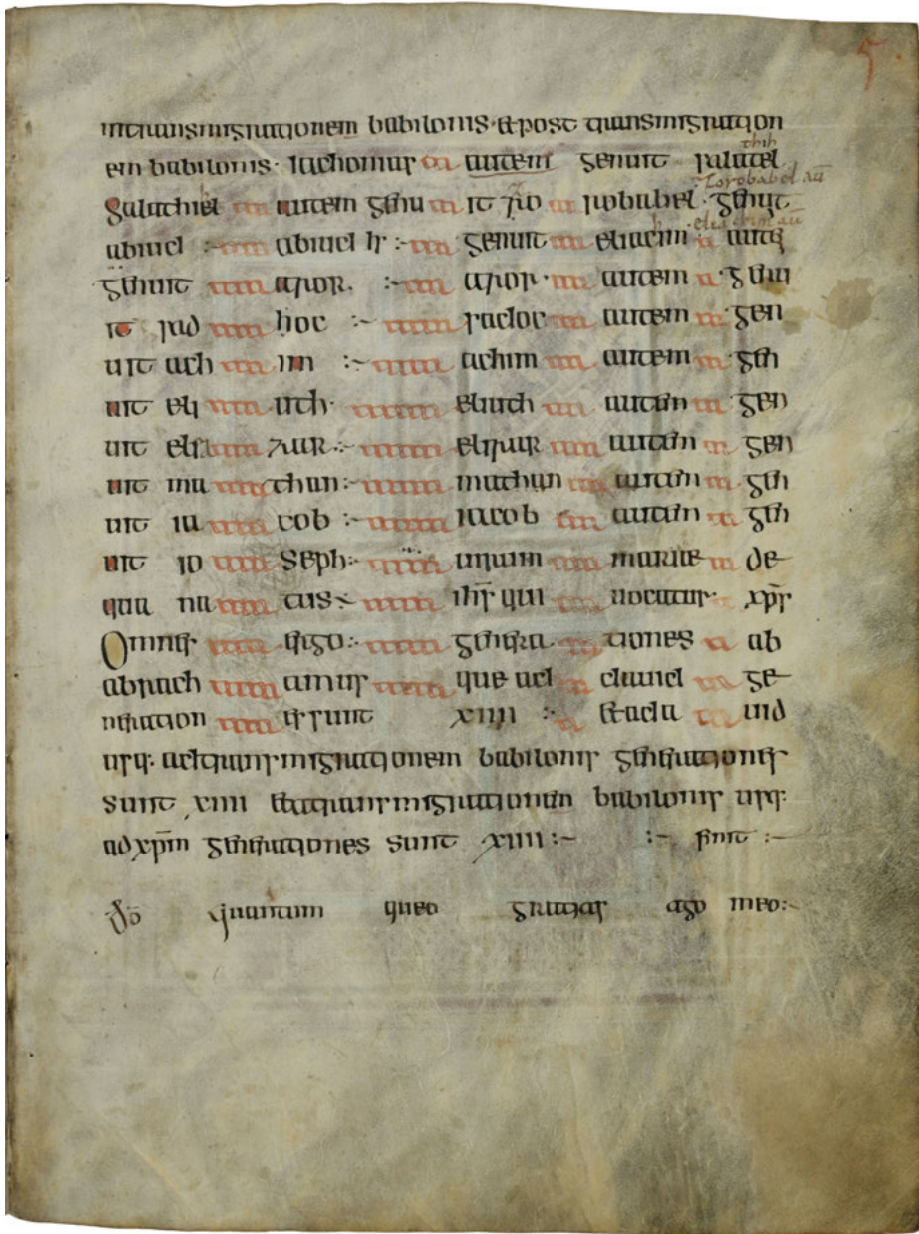 5
intransmigrationem babilonis · et post transmigration
em babilonis · iachonias autem genuit salatel
thih
salathiel autem genu it zo robabel · genuit
Zorobabel aū
abiud :~ abiud h :~ genuit eliacim autē
eliachim aū
genuit azor. :~ azor · autem · genu
it sad hoc :~ sadoc autem · gen
uit ach im :~ achim autem · gen
uit eli uth · eliuth autem · gen
uit eli zar :~ eliazar autem gen
uit ma than :~ mathan autem · gen
uit ia cob :~ iacob autem · gen
uit io seph :~ uirum mariae de
qua na tus ihs qui uocatur · xps
Omnes ergo :~ genera tiones ab
abrach am us que ad dauid ge
neration es sunt xiiii :~ et a da uid
usq: ad transmigrationem babilonis generationes
sunt xiiii et a transmigrationem babilonis usq:
ad xpm generationes sunt xiiii :~ :~ finit :~
dō quantum queo gratias ago meo :~